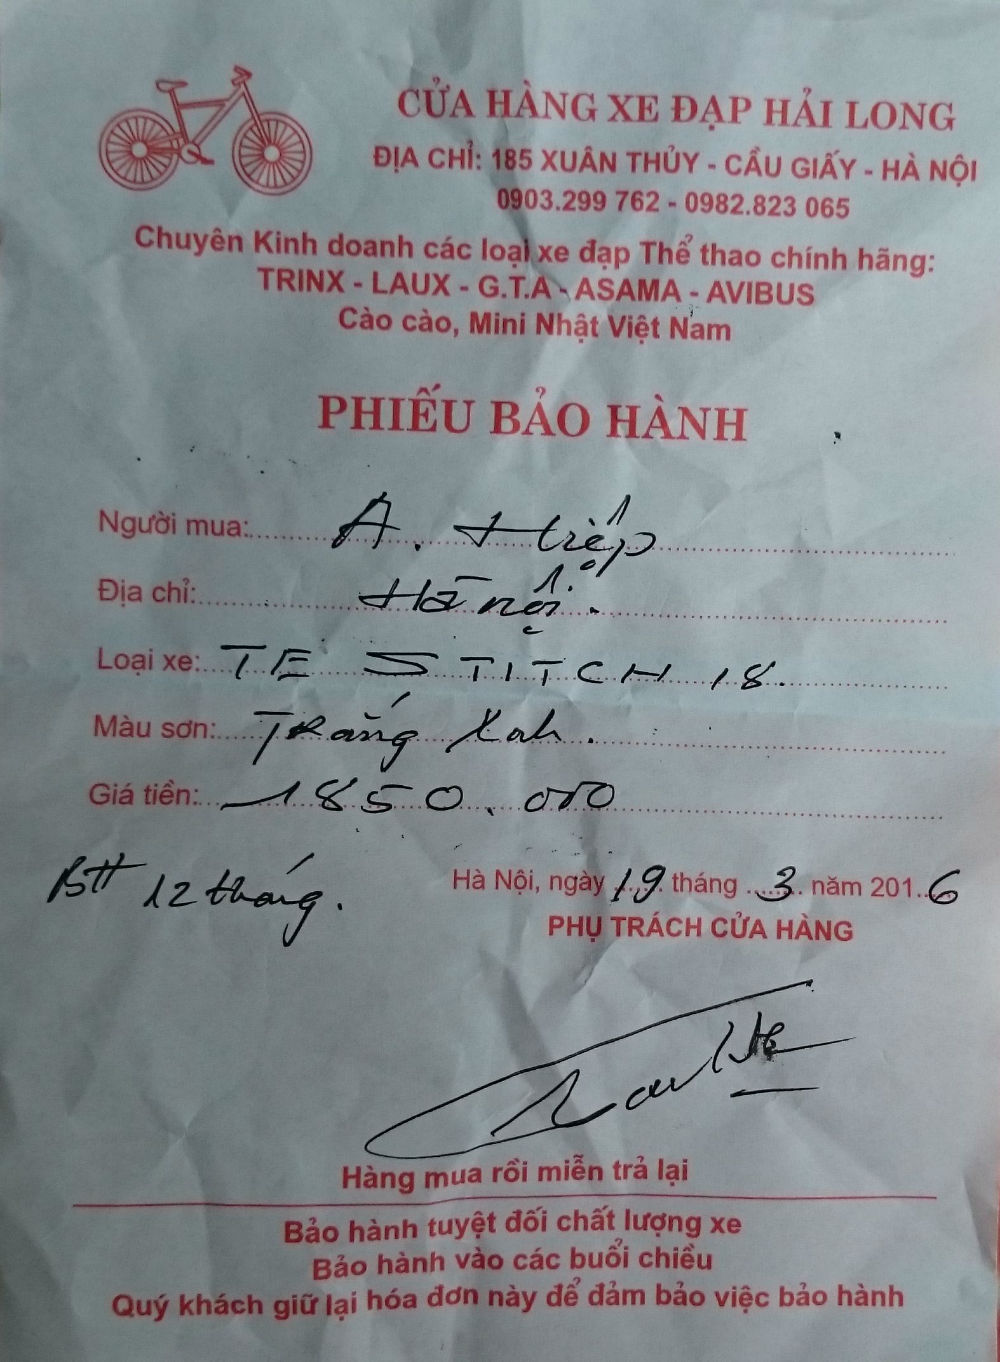 CỬA HÀNG XE ĐẠP HẢI LONG
ĐỊA CHỈ: 185 XUÂN THỦY - CẦU GIẤY - HÀ NỘI
0903.299 762 - 0982.823 065
Chuyên Kinh doanh các loại xe đạp Thể thao chính hãng:
TRINX - LAUX - G.T.A - ASAMA - AVIBUS
Cào cào, Mini Nhật Việt Nam
PHIẾU BẢO HÀNH
Người mua: A. Hiệp
Địa chỉ: Hà nội.
Loại xe: TE STITCH 18.
Màu sơn: Trắng Xanh.
Giá tiền: 1850.000
BH 12 tháng.
Hà Nội, ngày 19 tháng 3 năm 2016
PHỤ TRÁCH CỬA HÀNG
Hàng mua rồi miễn trả lại
Bảo hành tuyệt đối chất lượng xe
Bảo hành vào các buổi chiều
Quý khách giữ lại hóa đơn này để đảm bảo việc bảo hành